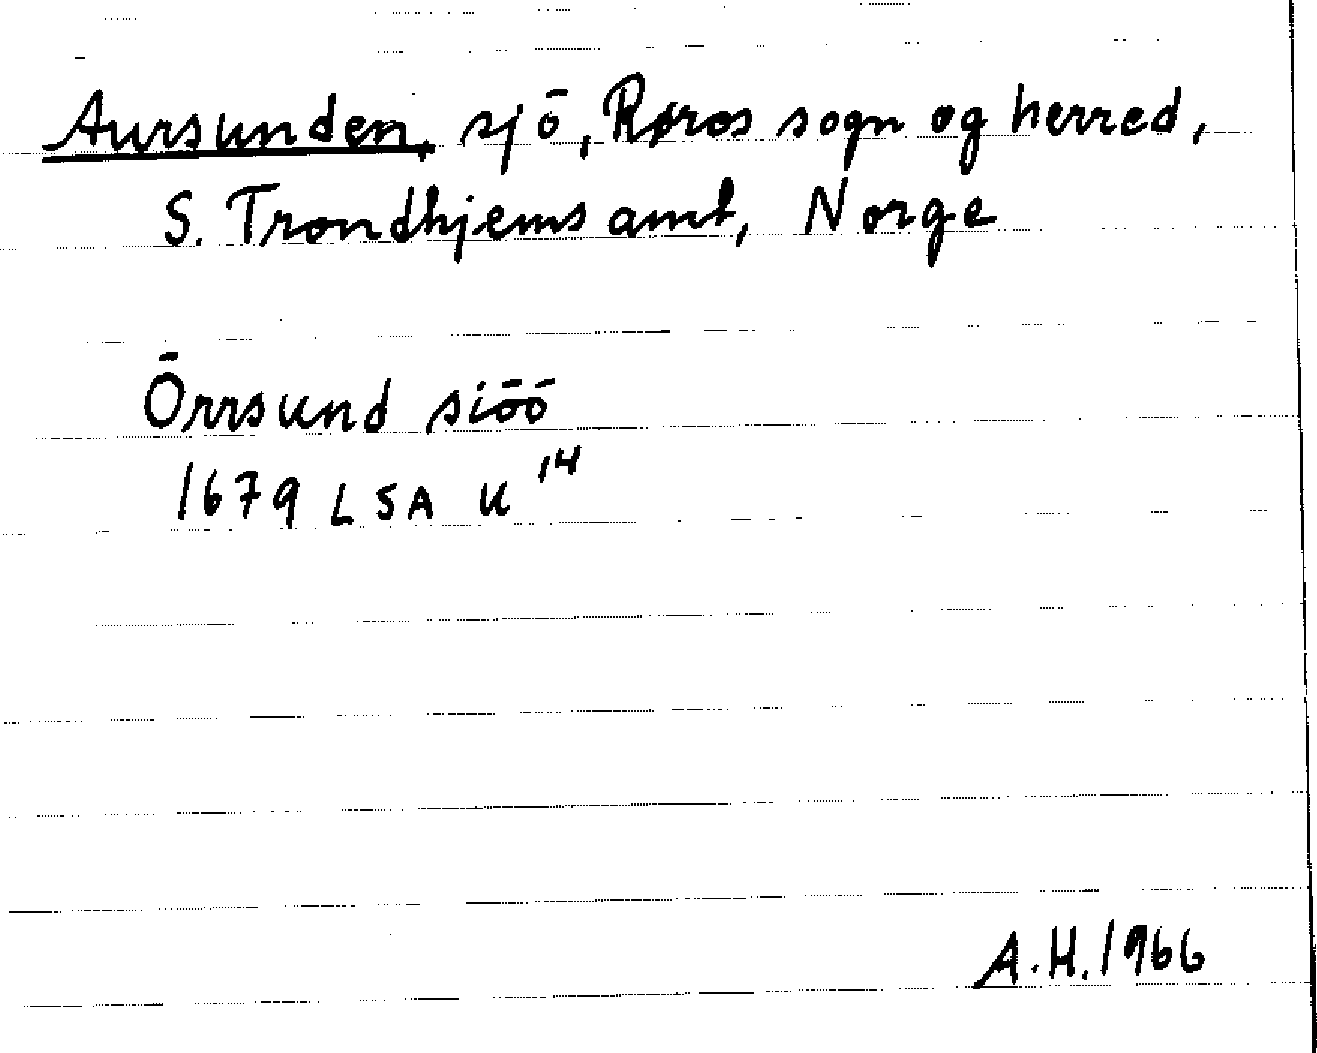 Aursunden, sjö, Røros sogn og herred,
S. Trondhjems amt, Norge
Örrsund siöö
1679 LSA K 14
A.H. 1966